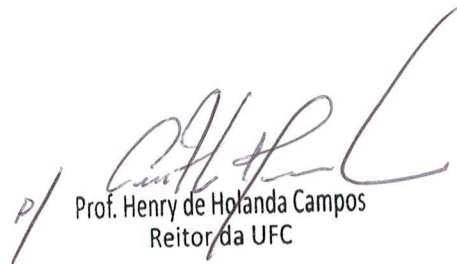 P/
Prof. Henry de Holanda Campos
Reitor da UFC